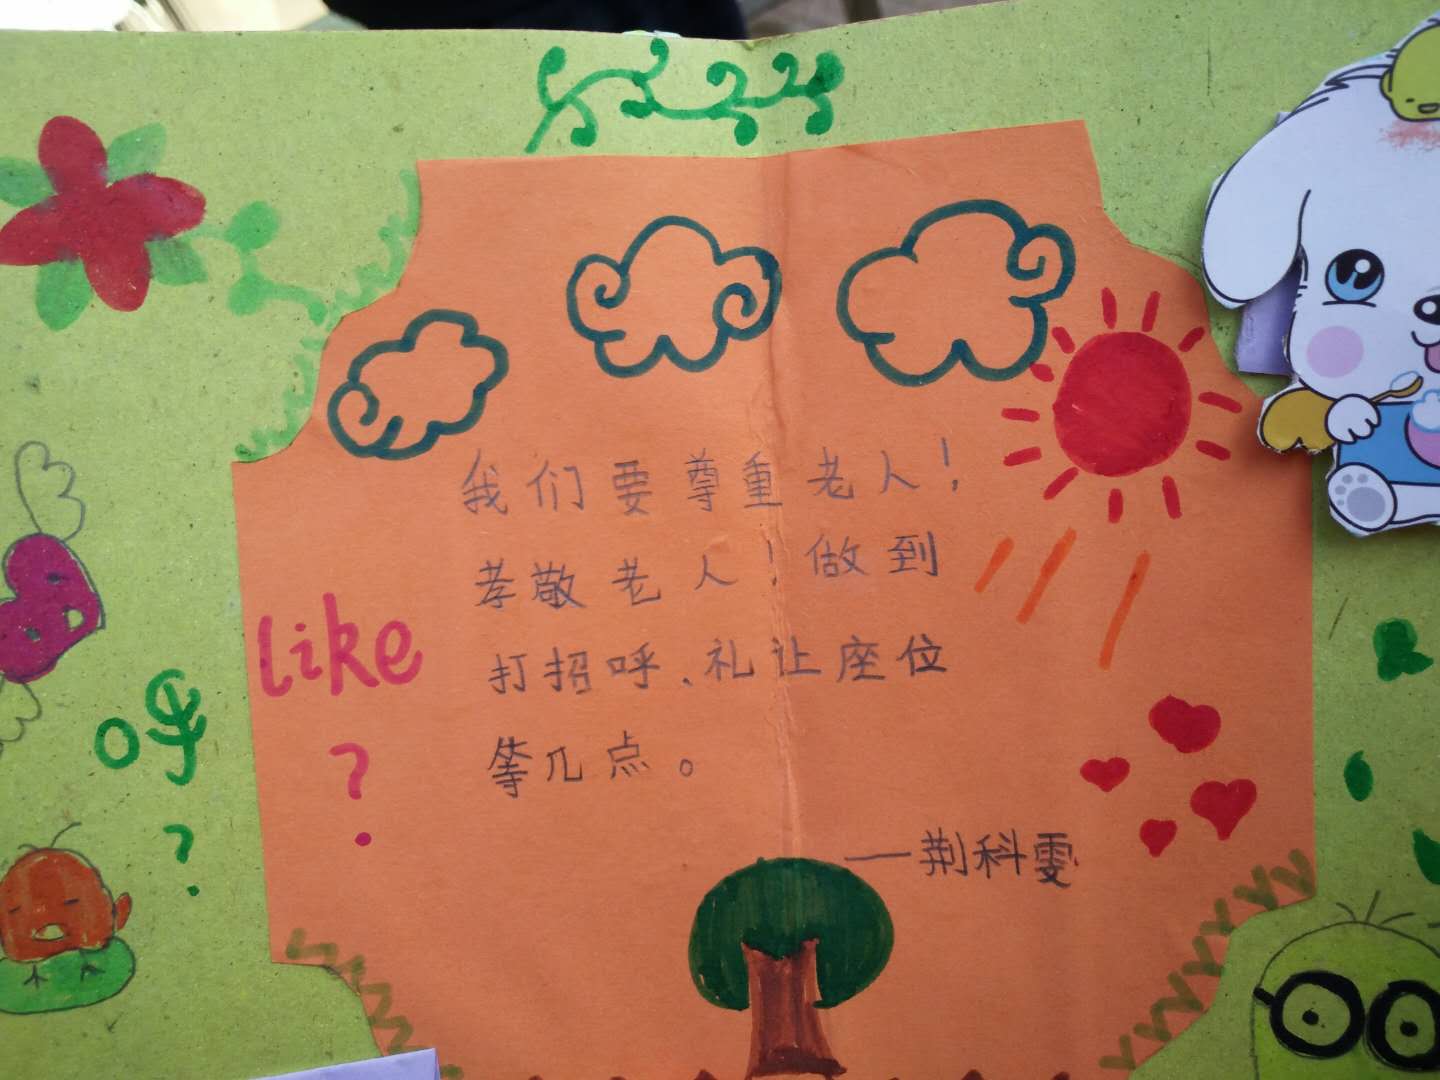 我们要尊重老人！
孝敬老人！做到
打招呼、礼让座位
等几点。
——荆科雯
like
?
呼
?